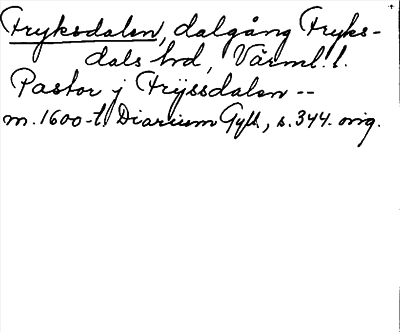 Fryksdalen, dalgång Fryks-
dals hd, Värml. l.
Pastor j Frÿssdalen --
m. 1600-t. Diarium Gyll., s. 344. orig.